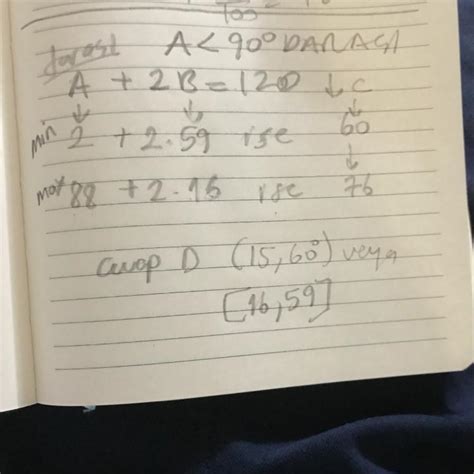 100
A < 90° DAR AÇI
A + 2B = 120 ↓ C
↓ ↓ ↓
min 2 + 2.59 ise 60
↓
max 88 + 2.16 ise 76
cevap D (15,60°) veya
[16,59]